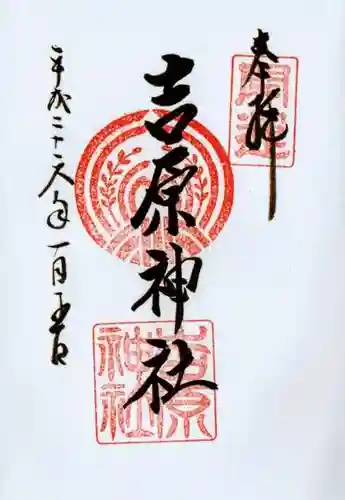 奉拝
開運
吉原神社
吉原神社
平成二十六年一月五日